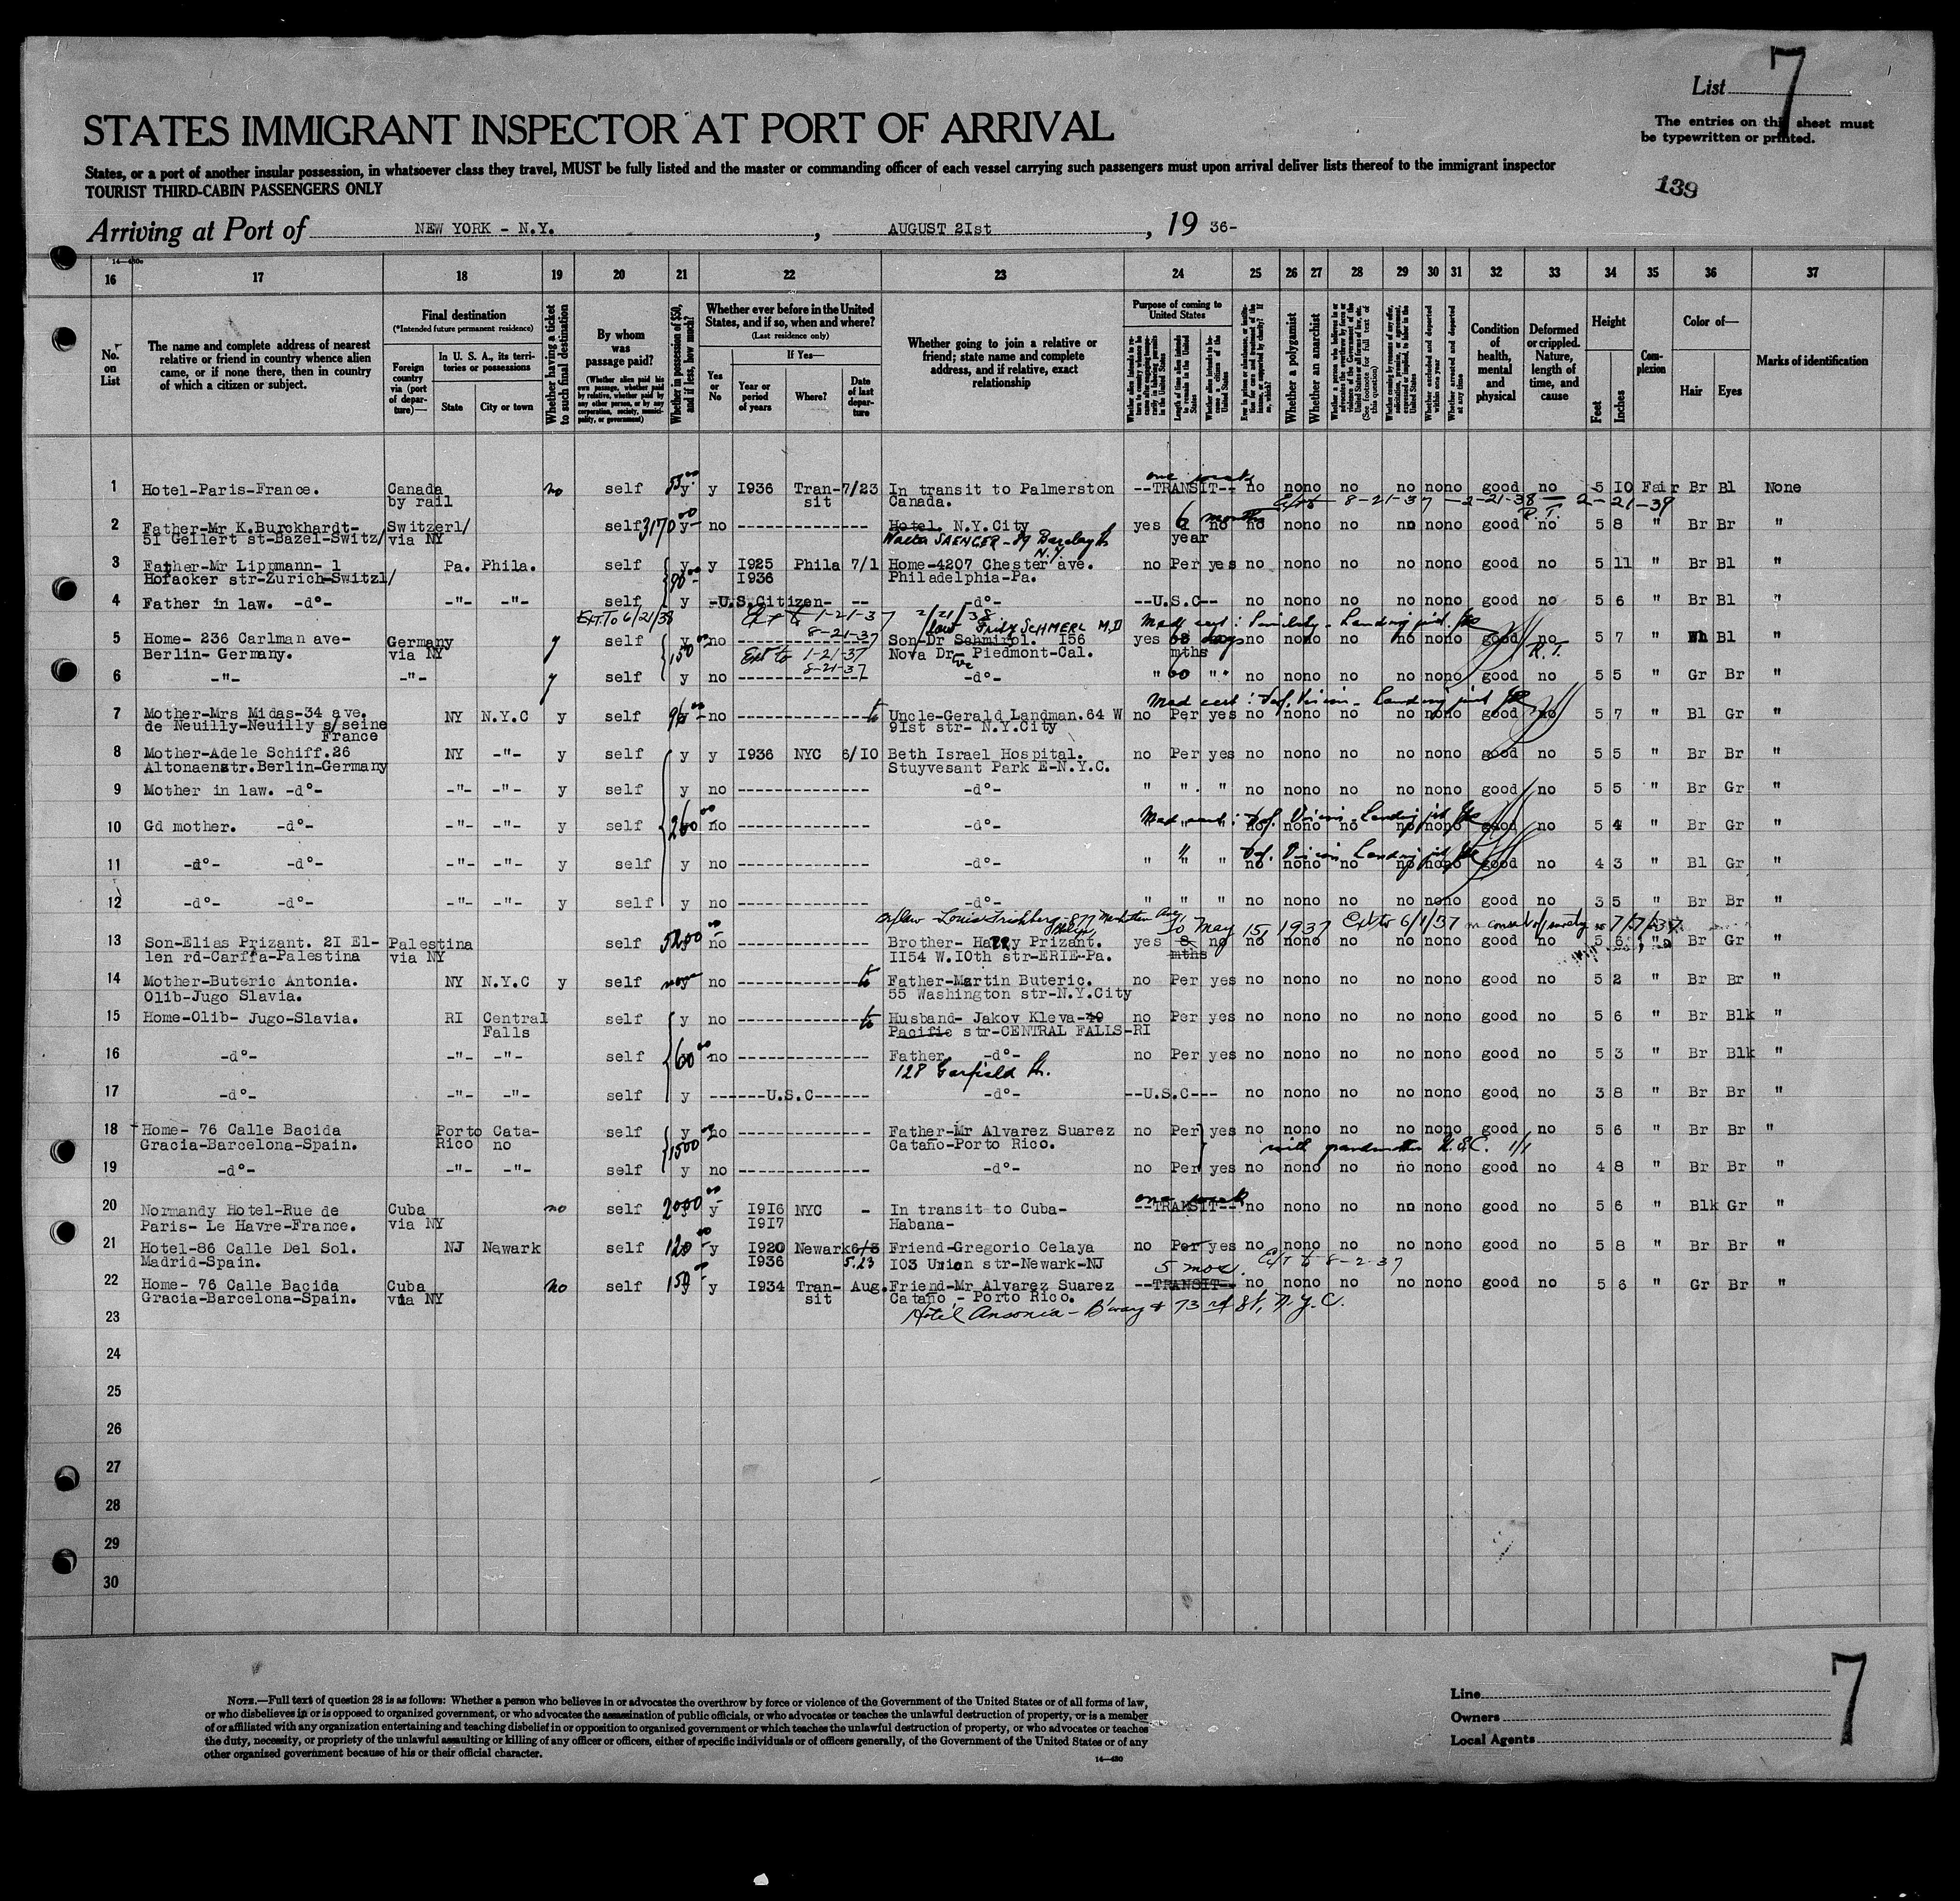 List 7
STATES IMMIGRANT INSPECTOR AT PORT OF ARRIVAL
The entries on this sheet must
be typewritten or printed.
States, or a port of another insular possession, in whatsoever class they travel, MUST be fully listed and the master or commanding officer of each vessel carrying such passengers must upon arrival deliver lists thereof to the immigrant inspector
TOURIST THIRD-CABIN PASSENGERS ONLY
139
Arriving at Port of NEW YORK - N.Y. , AUGUST 2Ist , 19 36-
16 17 18 19 20 21 22 23 24 25 26 27 28 29 30 31 32 33 34 35 36 37
No. on List
The name and complete address of nearest relative or friend in country whence alien came, or if none there, then in country of which a citizen or subject.
Final destination
(*Intended future permanent residence)
Foreign country via (port of departure)—
In U. S. A., its territories or possessions
State
City or town
Whether having a ticket to such final destination
By whom was passage paid?
(Whether alien paid his own passage, whether paid by relative, whether paid by any other person, or by any corporation, society, municipality, or government)
Whether in possession of $50, and if less, how much?
Whether ever before in the United States, and if so, when and where?
(Last residence only)
Yes or No
If Yes—
Year or period of years
Where?
Date of last departure
Whether going to join a relative or friend; state name and complete address, and if relative, exact relationship
Purpose of coming to United States
Whether a polygamist
Whether an anarchist
Whether excluded and deported within one year
Whether arrested and deported at any time
Condition of health, mental and physical
Deformed or crippled. Nature, length of time, and cause
Height
Feet
Inches
Complexion
Color of—
Hair
Eyes
Marks of identification
one week
1 Hotel-Paris-France. Canada by rail no self y y I936 Transit 7/23 In transit to Palmerston Canada. --TRANSIT-- no no no no no no no good no 5 10 Fair Br Bl None
Ext to 8-21-37 - 2-21-38 - 2-21-39
R.T.
2 Father-Mr K.Burckhardt- 51 Gellert st-Bazel-Switz/ Switzerl/ via NY self 3170 y no ---------------- Hotel N.Y.City yes 6 months year no no no no no no no no good no 5 8 " Br Br "
Walter SAENGER - 89 Barclay St N.Y.
3 Father-Mr Lippmann- 1 Hofacker str-Zurich-Switzl/ Pa. Phila. self y y I925 I936 Phila 7/1 Home-4207 Chester ave. Philadelphia-Pa. no Per yes no no no no no no no good no 5 11 " Br Bl "
4 Father in law. -d°- -"- -"- self y -U.S.Citizen- -- -d°- --U.S.C-- no no no no no no no good no 5 6 " Br Bl "
Ext. To 6/21/38 Ext to 1-21-37 8-21-37 2/21/38
Son in law Fritz SCHMERL M.D
Med cert: Senility - Landing just.
5 Home- 236 Carlman ave- Berlin- Germany. Germany via NY y self y 150 no Son-Dr Schmirol. I56 Nova Dr- Piedmont-Cal. yes mths no no no no no no no good no 5 7 " Wh Bl "
Ext to 1-21-37 8-21-37
R.T.
6 -"- -"- y self y no ---------------- -d°- " 60 " " no no no no no no no good no 5 5 " Gr Br "
Med cert: Def. Vision - Landing just
7 Mother-Mrs Midas-34 ave. de Neuilly-Neuilly s/seine France NY N.Y.C y self no ---------------- Uncle-Gerald Landman.64 W 9Ist str- N.Y.City no Per yes no no no no no no no good no 5 7 " Bl Gr "
8 Mother-Adele Schiff.26 Altonaenstr.Berlin-Germany NY -"- y self y y I936 NYC 6/I0 Beth Israel Hospital. Stuyvesant Park E-N.Y.C. no Per yes no no no no no no no good no 5 5 " Br Br "
9 Mother in law. -d°- -"- -"- y self y no ---------------- -d°- " " " no no no no no no no good no 5 5 " Br Gr "
Med cert: Def. Vision - Landing just
10 Gd mother. -d°- -"- -"- y self 260 no ---------------- -d°- " " " no no no no no no no good no 5 4 " Br Gr "
Def. Vision Landing just
11 -d°- -d°- -"- -"- y self y no ---------------- -d°- " " " no no no no no no no good no 4 3 " Bl Gr "
12 -d°- -d°- -"- -"- y self y no ---------------- -d°- " " " no no no no no no no good no 3 5 " Br Br "
To May 15, 1937 Ext to 6/1/37
13 Son-Elias Prizant. 2I Ellen rd-Carffa-Palestina Palestina via NY self no ---------------- Brother- Harry Prizant. II54 W.I0th str-ERIE-Pa. yes 8 mths no no no no no no no no good no 5 6 " Br Gr "
14 Mother-Buteric Antonia. Olib-Jugo Slavia. NY N.Y.C y self none no ---------------- Father-Martin Buteric. 55 Washington str-N.Y.City no Per yes no no no no no no no good no 5 2 " Br Br "
15 Home-Olib- Jugo-Slavia. RI Central Falls self y no ---------------- Husband- Jakov Kleva-49 Pacific str-CENTRAL FALLS-RI no Per yes no no no no no no no good no 5 6 " Br Blk "
16 -d°- -"- -"- self 60 no ---------------- Father -d°- no Per yes no no no no no no no good no 5 3 " Br Blk "
128 Garfield St.
17 -d°- -"- -"- self y ------U.S.C------ -d°- --U.S.C--- no no no no no no no good no 3 8 " Br Br "
18 Home- 76 Calle Bacida Gracia-Barcelona-Spain. Porto Rico Catano self y no ---------------- Father-Mr Alvarez Suarez Cataño-Porto Rico. no Per yes no no no no no no no good no 5 6 " Br Br "
1500
with grandmother U.S.C. 1/1
19 -d°- -"- -"- self y no ---------------- -d°- no Per yes no no no no no no no good no 4 8 " Br Br "
one week
20 Normandy Hotel-Rue de Paris- Le Havre-France. Cuba via NY no self 2000 y I9I6 I9I7 NYC - In transit to Cuba- Habana- --TRANSIT-- no no no no no no no good no 5 6 " Blk Gr "
21 Hotel-86 Calle Del Sol. Madrid-Spain. NJ Newark self 120 y I920 I936 Newark 6/3 5.23 Friend-Gregorio Celaya I03 Union str-Newark-NJ no Per yes no no no no no no no good no 5 8 " Br Br "
5 mos. Ext to 8-2-37
22 Home- 76 Calle Bacida Gracia-Barcelona-Spain. Cuba via NY no self 150 y I934 Transit Aug. Friend-Mr Alvarez Suarez Cataño - Porto Rico. --TRANSIT-- no no no no no no no good no 5 6 " Gr Br "
Hotel Ansonia - B'way & 73rd St, N.Y.C.
23
24
25
26
27
28
29
30
NOTE.—Full text of question 28 is as follows: Whether a person who believes in or advocates the overthrow by force or violence of the Government of the United States or of all forms of law,
or who disbelieves in or is opposed to organized government, or who advocates the assassination of public officials, or who advocates or teaches the unlawful destruction of property, or is a member
of or affiliated with any organization entertaining and teaching disbelief in or opposition to organized government or which teaches the unlawful destruction of property, or who advocates or teaches
the duty, necessity, or propriety of the unlawful assaulting or killing of any officer or officers, either of specific individuals or of officers generally, of the Government of the United States or of any
other organized government because of his or their official character.
14—430
Line
Owners
Local Agents
7